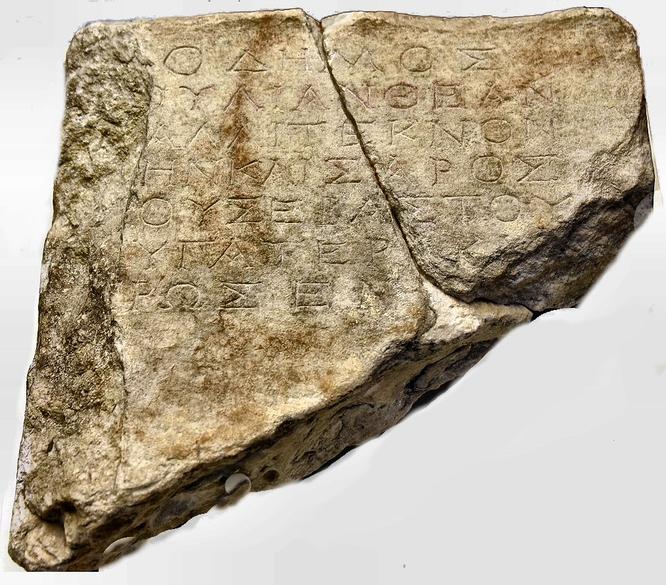 Ο ΔΗΜΟΣ
ΟΥΛΙΑΝΘΕΑΝ
ΑΛΛΙΤΕΚΝΟΝ
ΗΝΚΑΙΣΑΡΟΣ
ΟΥΣΕΒΑΣΤΟΥ
ΥΓΑΤΕΡ
ΡΩΣ ΕΝ